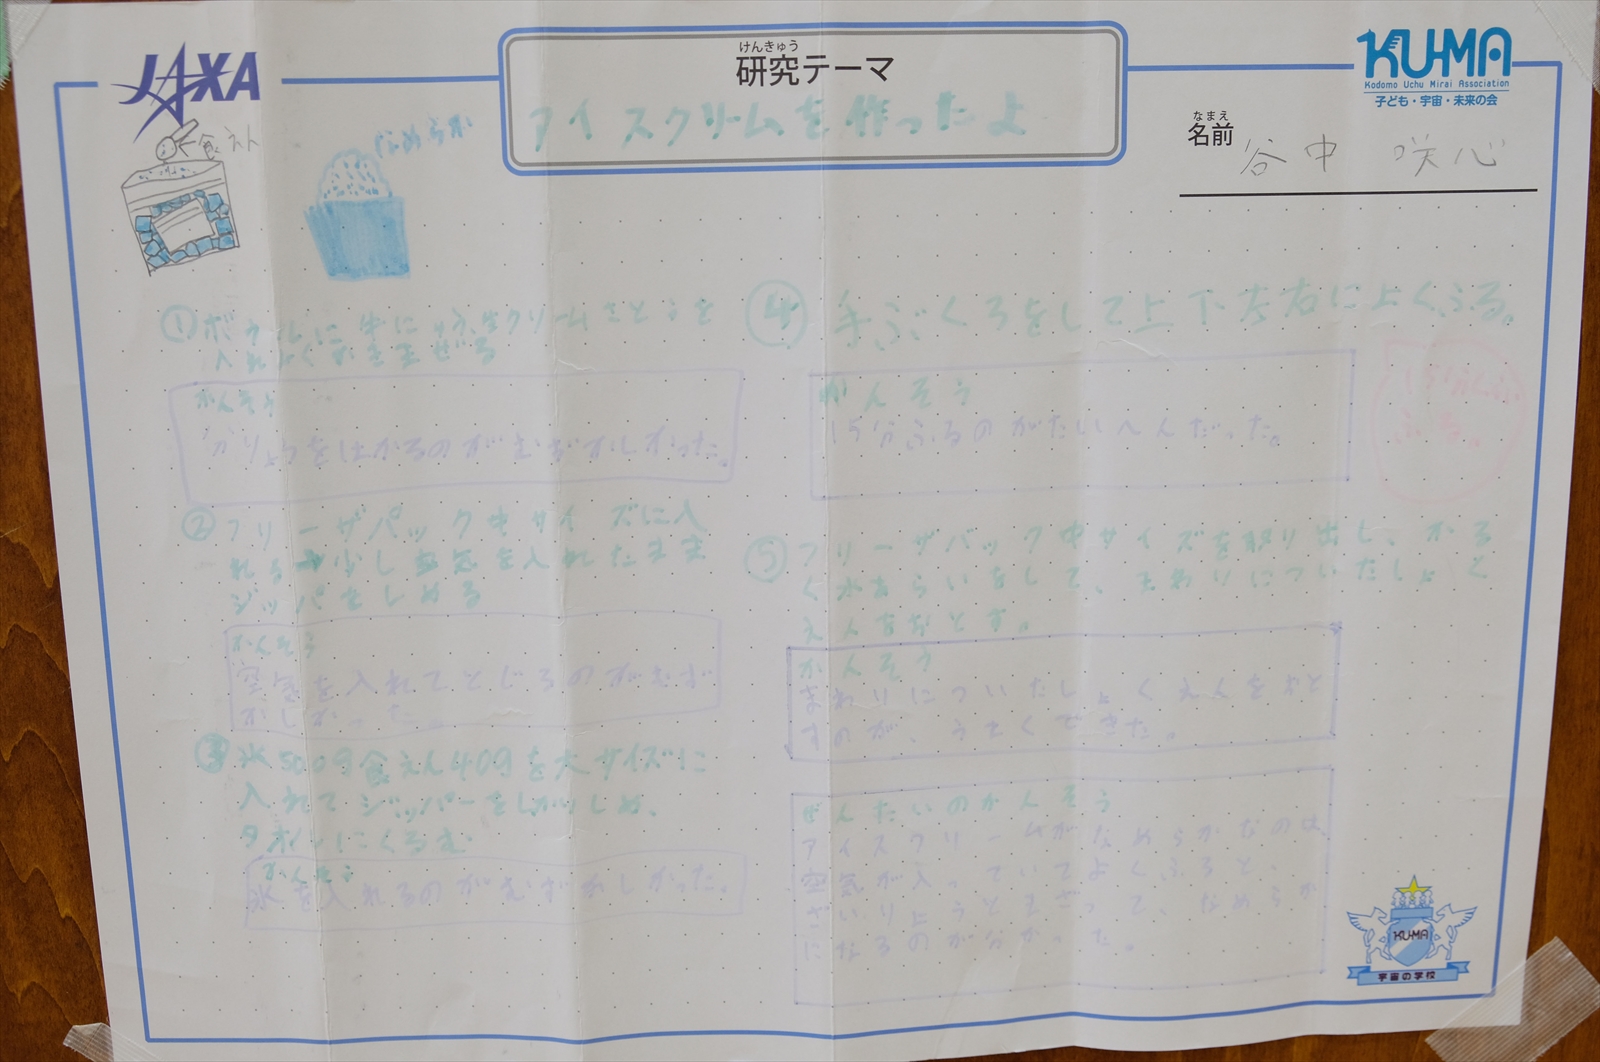 JAXA
けんきゅう
研究テーマ
アイスクリームを作ったよ
KU-MA
Kodomo Uchu Mirai Association
子ども・宇宙・未来の会
なまえ
名前
谷中 咲心
食えん
なめらか
①ボウルに牛にゅう、生クリームさとうを
入れよくかきまぜる
かんそう
分りょうをはかるのがむずかしかった。
②フリーザパック中サイズに入
れる→少し空気を入れたまま
ジッパをしめる
かんそう
空気を入れてとじるのがむず
かしかった。
③氷500g食えん40gを大サイズに
入れてジッパーをしめ、
タオルにくるむ
かんそう
氷を入れるのがむずかしかった。
④手ぶくろをして上下左右によくふる。
かんそう
15分ふるのがたいへんだった。
15分くらい
ふる。
⑤フリーザパック中サイズを取り出し、かる
く水あらいをして、まわりについたしょく
えんをおとす。
かんそう
まわりについたしょくえんをおと
すのが、うまくできた。
ぜんたいのかんそう
アイスクリームがなめらかなのは
空気が入っていてよくふると、
ざいりょうとまざって、なめらか
になるのが分かった。
KU-MA
宇宙の学校